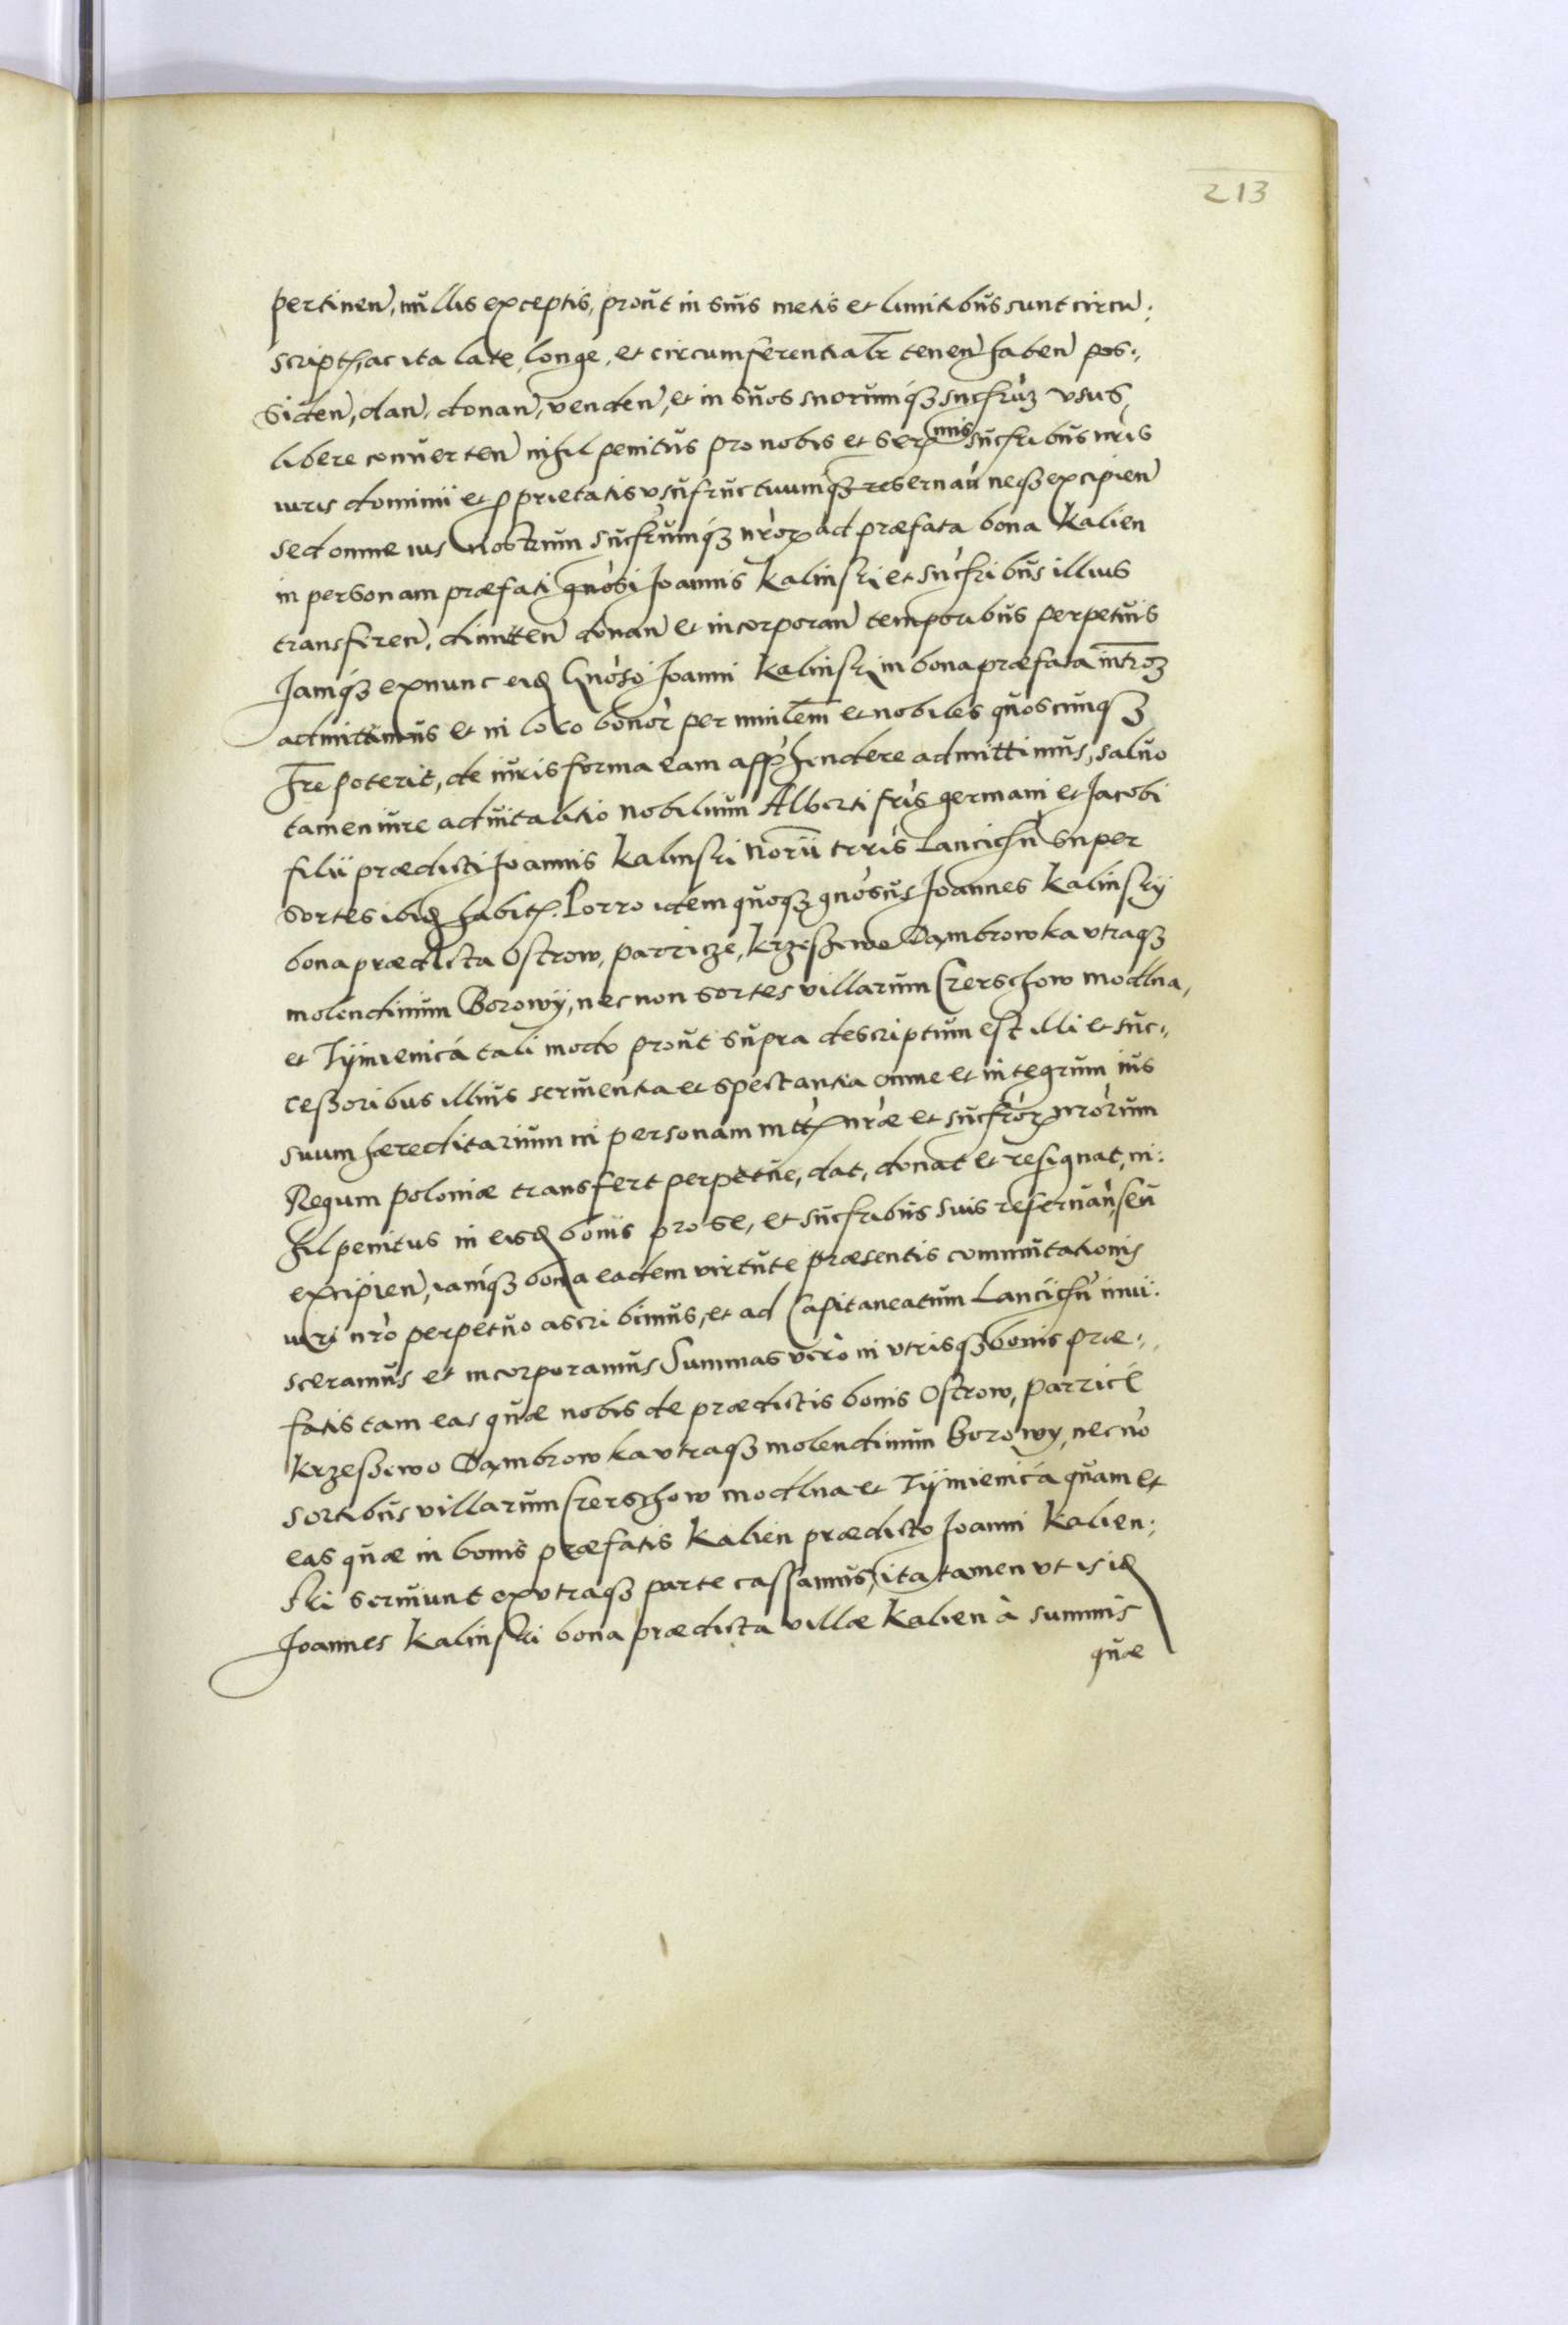 213
pertinen, nullis exceptis, prout in suis metis et limitibus sunt circu:
script, ac ita late, longe, et circumferentialr tenen haben pos:
siden, dan, donan, venden, et in suos suorumq3 sucfrum usus,
libere converten nihil penitus pro nobis et Sermis sucfribus nris
iuris dominii et proprietatis usufructuumq3 reservan neq3 excipien
sed omne ius nostrum sucfrumq3 nror ad præfata bona Kalien
in personam præfati gnosi Joannis Kalinski et sucfribus illius
transferen, dimitten donan et incorporan temporibus perpetuis
Jamq3 exnunc eid Gnoso Joanni Kalinski in bona præfata introm
admittimus et in loco bonor per mintem et nobiles quoscunq3
hre poterit, de iuris forma eam apphendere admittimus, salvo
tamen iure advitalitio Nobilium Alberti fris germani et Jacobi
filii prædicti Joannis Kalinski Norii trris Lancichn super
sortes ibid habit. Porro idem quoq3 gnosus Joannes Kalinsky
bona prædicta Ostrow, parzicze, Krzeszewo Dambrowka utraq3
molendinum Borowy, nec non sortes villarum Czerschow modlna,
et Tymienica tali modo prout supra descriptum est illi et suc:
cessoribus illius servientia et spectantia omne et integrum ius
suum hæreditarium in personam mtt nræ et sucfror nrorum
Regum Poloniæ transfert perpetue, dat, donat et resignat, ni:
hil penitus in eisd bonis pro se, et sucfribus suis reservan, seu
excipien, iamq3 bona eadem virtute præsentis commutationis
iuri nro perpetuo ascribimus, et ad Capitaneatum Lancichn invi:
sceramus et incorporamus Summas vero in utrisq3 bonis præ:
fatis tam eas quæ nobis de prædictis bonis Ostrow, parzice
Krzeszewo Dambrowka utraq3 molendinum Borowy, nec no
sortibus villarum Czerschow modlna et Tymienica quam et
eas quæ in bonis præfatis Kalien prædicto Joanni Kalien:
ski serviunt ex utraq3 parte cassamus, ita tamen ut is id
Joannes Kalinski bona prædicta villæ Kalien à summis
quæ